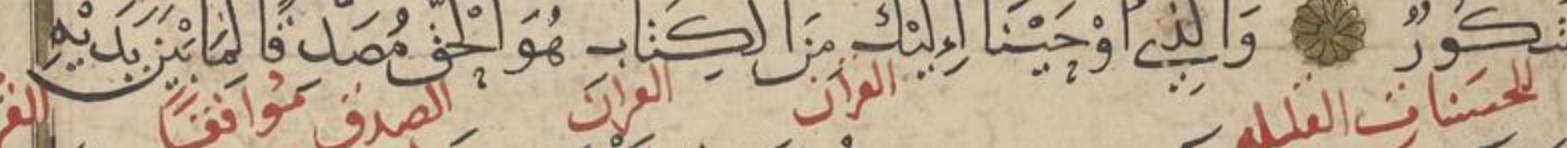 شكور والذي أوحينا إليك من الكتاب هو الحق مصدقا لما بين يديه
للحسنات القليلة القرآن القرآن الصدق موافقا